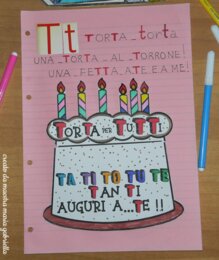 Tt TORTA_torta
UNA_TORTA_AL_TORRONE!
UNA_FETTA_A TE_E A ME!
TORTA PER TUTTI
TA TI TO TU TE
TANTI
AUGURI A...TE!!
creato da maestra maria gabriella